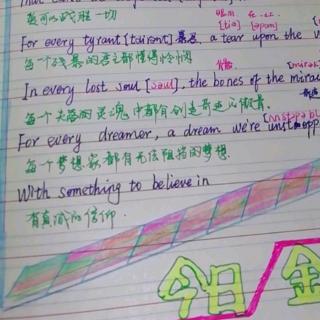 爱可以战胜一切
眼泪 在…上
[tiə] [əpɒn]
For every tyrant [tairənt] 暴君, a tear upon the v
每个残暴的君主都懂得怜悯
骨骼 [mirək
In every lost soul [səul], the bones of the mirac
每个失落的灵魂中都有创造奇迹的傲骨
[ʌnstɒpəbl
For every dreamer, a dream we're unstopp
每个梦想家都有无法阻挡的梦想
With something to believe in
有真诚的信仰.
今日 金